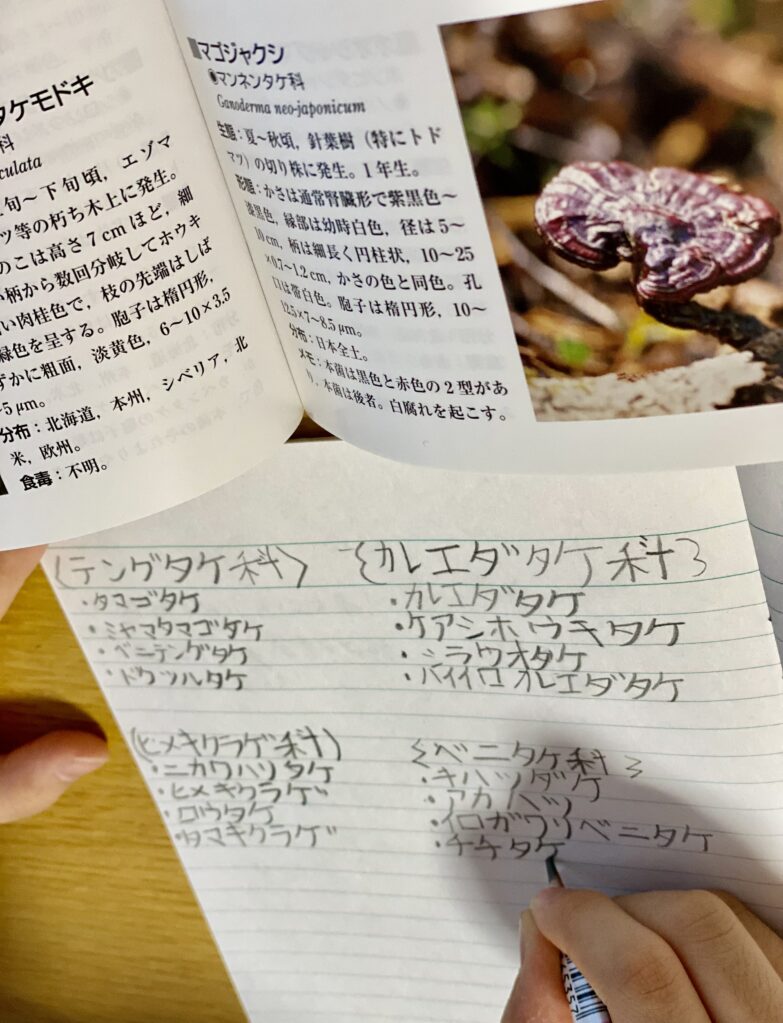 タケモドキ
科
culata
旬～下旬頃，エゾマ
ツ等の朽ち木上に発生。
のこは高さ7cmほど，細
い柄から数回分岐してホウキ
い肉桂色で，枝の先端はしば
緑色を呈する。胞子は楕円形，
ずかに粗面，淡黄色，6～10×3.5
5μm。
分布：北海道，本州，シベリア，北
米，欧州。
食毒：不明。
■マゴジャクシ
●マンネンタケ科
Ganoderma neo-japonicum
生態：夏～秋頃，針葉樹（特にトド
マツ）の切り株に発生。1年生。
形態：かさは通常腎臓形で紫黒色～
漆黒色，縁部は幼時白色，径は5～
10cm，柄は細長く円柱状，10～25
×0.7～1.2cm，かさの色と同色。孔
口は帯白色。胞子は楕円形，10～
12.5×7～8.5μm。
分布：日本全土。
メモ：本菌は黒色と赤色の2型があ
り，本菌は後者。白腐れを起こす。
〈テングタケ科〉
・タマゴタケ
・ミヤマタマゴタケ
・ベニテングタケ
・ドクツルタケ
〈カレエダタケ科〉
・カレエダタケ
・ケアシホウキタケ
・シラウオタケ
・バイイロカレエダタケ
(ヒメキクラゲ科)
・ニカワハリタケ
・ヒメキクラゲ
・ロウタケ
・タマキクラゲ
〈ベニタケ科〉
・キハツダケ
・アカハツ
・イロガワリベニタケ
・チチタケ